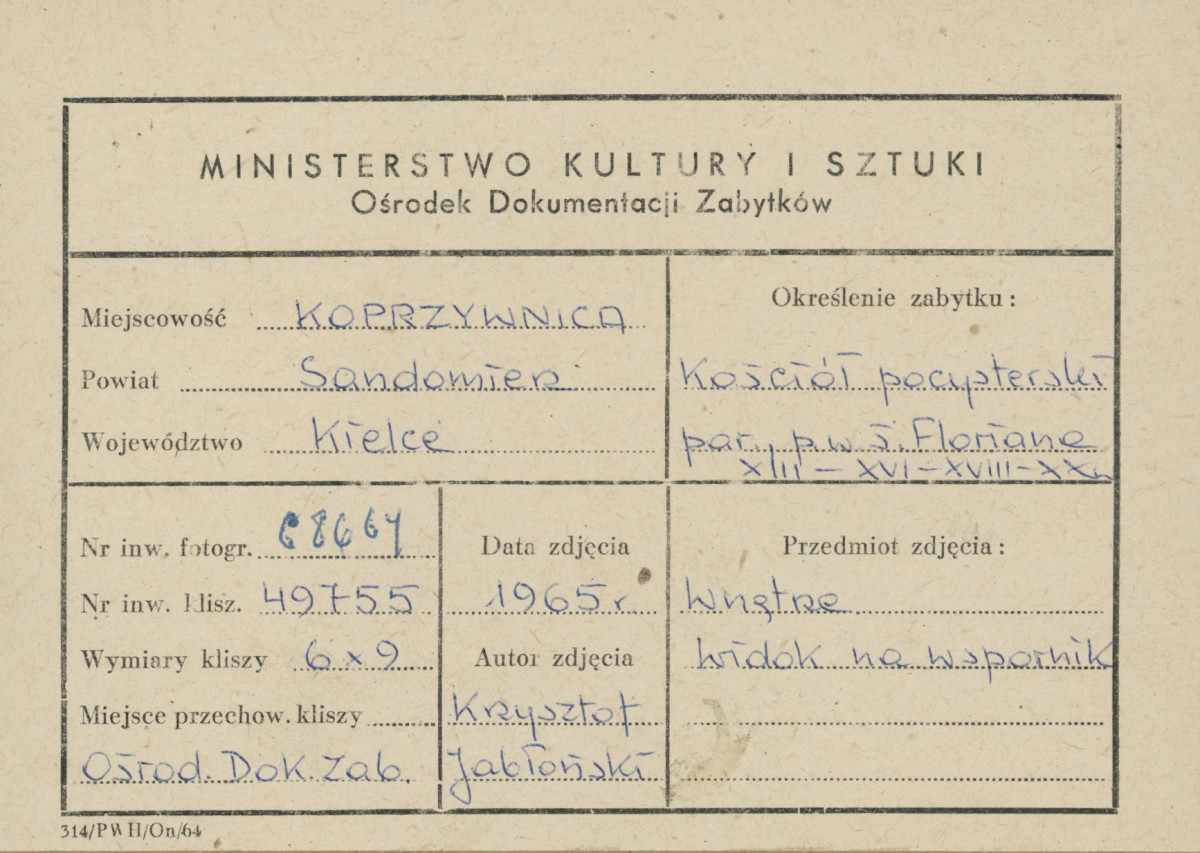 MINISTERSTWO KULTURY I SZTUKI
Ośrodek Dokumentacji Zabytków
Miejscowość KOPRZYWNICA
Powiat Sandomierz
Województwo Kielce
Określenie zabytku:
Kościół pocysterski
par., p.w ś. Floriana
XIII - XVI - XVIII - XX
Nr inw. fotogr. 68664
Nr inw. klisz. 49755
Wymiary kliszy 6 x 9
Miejsce przechow. kliszy
Ośrod. Dok. Zab.
Data zdjęcia
1965 r.
Autor zdjęcia
Krzysztof
Jabłoński
Przedmiot zdjęcia:
Wnętrze
Widok na wspornik
314/PWH/On/64